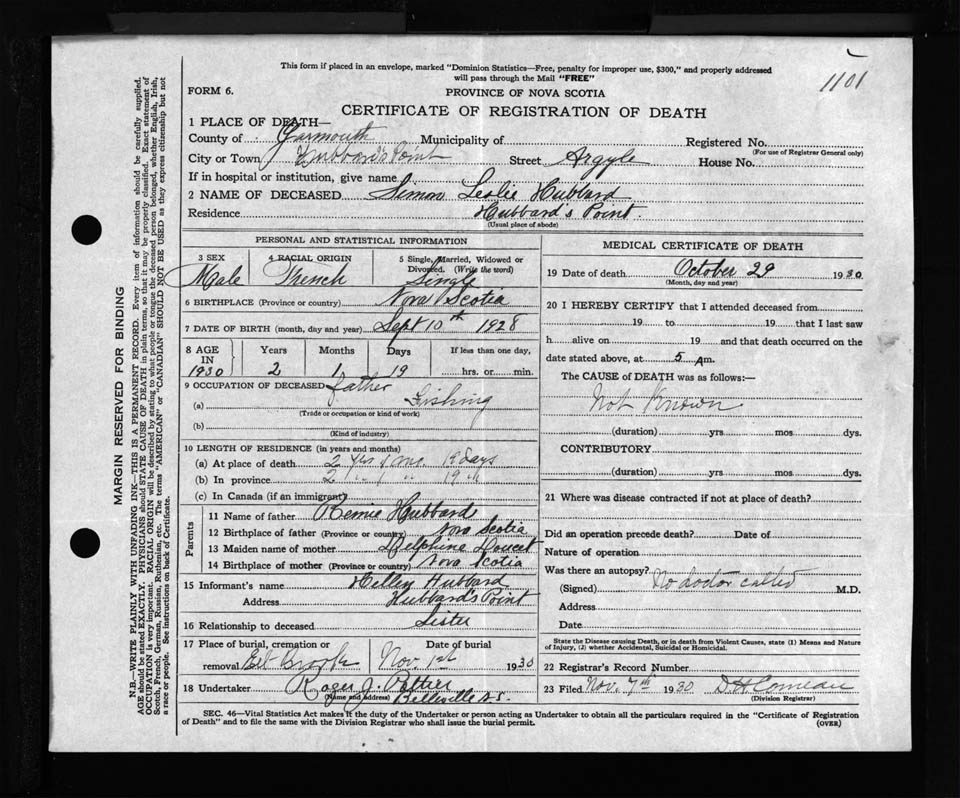 1101
This form if placed in an envelope, marked "Dominion Statistics—Free, penalty for improper use, $300," and properly addressed
will pass through the Mail "FREE"
FORM 6.
PROVINCE OF NOVA SCOTIA
CERTIFICATE OF REGISTRATION OF DEATH
1 PLACE OF DEATH—
County of Yarmouth Municipality of Registered No.
(For use of Registrar General only)
City or Town Hubbard's Point Street Argyle House No.
If in hospital or institution, give name
2 NAME OF DECEASED Simon Leslie Hubbard
Residence Hubbard's Point.
(Usual place of abode)
PERSONAL AND STATISTICAL INFORMATION
3 SEX Male
4 RACIAL ORIGIN French
5 Single, Married, Widowed or Divorced. (Write the word) Single
6 BIRTHPLACE (Province or country) Nova Scotia
7 DATE OF BIRTH (month, day and year) Sept 10th 1928
8 AGE IN 1930 Years 2 Months 1 Days 19 If less than one day, hrs. or min.
9 OCCUPATION OF DECEASED father
(a) Fishing
(Trade or occupation or kind of work)
(b)
(Kind of industry)
10 LENGTH OF RESIDENCE (in years and months)
(a) At place of death 2 yrs 1 mo. 19 days
(b) In province 2 " 1 " 19 "
(c) In Canada (if an immigrant)
Parents
11 Name of father Remie Hubbard
12 Birthplace of father (Province or country) Nova Scotia
13 Maiden name of mother Delphine Doucet
14 Birthplace of mother (Province or country) Nova Scotia
15 Informant's name Hubbard
Address Hubbard's Point
16 Relationship to deceased Sister
17 Place of burial, cremation or removal Eel Brook
Date of burial Nov. 1st 1930
18 Undertaker Roger J. Pottier
(Name and address) Belleville N.S.
MEDICAL CERTIFICATE OF DEATH
19 Date of death October 29 1930
(Month, day and year)
20 I HEREBY CERTIFY that I attended deceased from
19 to 19 that I last saw
h alive on 19 and that death occurred on the
date stated above, at 5 A m.
The CAUSE of DEATH was as follows:—
Not Known
(duration) yrs mos. dys.
CONTRIBUTORY
(duration) yrs mos dys.
21 Where was disease contracted if not at place of death?
Did an operation precede death? Date of
Nature of operation
Was there an autopsy?
(Signed) No doctor called M.D.
Address
Date
State the Disease causing Death, or in death from Violent Causes, state (1) Means and Nature
of Injury, (2) whether Accidental, Suicidal or Homicidal.
22 Registrar's Record Number
23 Filed Nov. 7th 1930 D H Comeau
(Division Registrar)
SEC. 46—Vital Statistics Act makes it the duty of the Undertaker or person acting as Undertaker to obtain all the particulars required in the "Certificate of Registration
of Death" and to file the same with the Division Registrar who shall issue the burial permit.
(OVER)
MARGIN RESERVED FOR BINDING
N.B.—WRITE PLAINLY WITH UNFADING INK—THIS IS A PERMANENT RECORD. Every item of information should be carefully supplied.
AGE should be stated EXACTLY. PHYSICIANS should STATE CAUSE OF DEATH in plain terms, so that it may be properly classified. Exact statement of
OCCUPATION is very important. RACIAL ORIGIN will be described by stating to what people or tongue the deceased person belonged, whether English, Irish,
Scotch, French, German, Russian, Ruthenian, etc. The terms "AMERICAN" or "CANADIAN" SHOULD NOT BE USED as they express citizenship but not
a race or people. See instructions on back of Certificate.